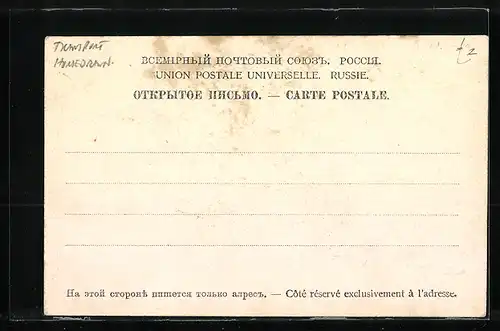 TRANSPORT
HORSEDRAWN.
£2
ВСЕМІРНЫЙ ПОЧТОВЫЙ СОЮЗЪ. РОССІЯ.
UNION POSTALE UNIVERSELLE. RUSSIE.
ОТКРЫТОЕ ПИСЬМО. — CARTE POSTALE.
На этой сторонѣ пишется только адресъ. — Côté réservé exclusivement à l'adresse.